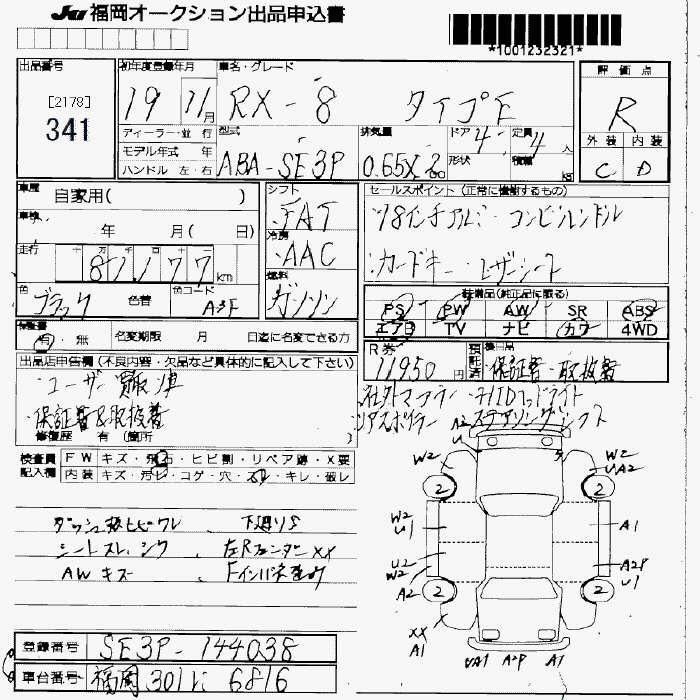 JU 福岡オークション出品申込書
*1001232321*
出品番号 初年度登録年月 車名・グレード 評価点
[2178] 341
19 11月 RX-8 タイプE
R
ディーラー・並行 型式 排気量 ドア 4 定員 4人
外装 内装
モデル年式 年 形状 積載 kg
ハンドル 左・右 ABA-SE3P 0.65X2
C D
車歴 自家用( ) シフト FAT
セールスポイント (正常に機能するもの)
車検 年 月( 日) 冷房 AAC
18インチアルミ・コンビハンドル
走行 十 万 千 百 十 一 87,177 km 燃料 ガソリン
・カードキー・レザーシート
色 ブラック 色替 色コード A3F
装備品(純正品に限る)
PS PW AW SR ABS
エアB TV ナビ カワ 4WD
保証書 有・無 名変期限 月 日迄に名変できる方
R券 11950円 預託済 後日品 ・保証書・取扱書
出品店申告欄 (不良内容・欠品など具体的に記入して下さい)
・ユーザー買取車
・保証書&取扱書
修復歴 有 (箇所 )
・社外マフラー・HIDヘッドライト
・リアスポイラー・ステアリングシフト
検査員記入欄 FW キズ・飛石・ヒビ割・リペア跡・X要
内装 キズ・汚レ・コゲ・穴・スレ・キレ・破レ
ダッシュ板ヒビワレ、下廻りS
シートスレ、シワ、左Rフェンダー XX
AWキズ
A2
U S
W2 W2
UA2
2 2
W2
U1 A1
U2 A2P
W2 U1
A2 2 2
XX
A1 A1
UA1 A2P A1
登録番号 SE3P-144038
車台番号 福岡 301 い 6816